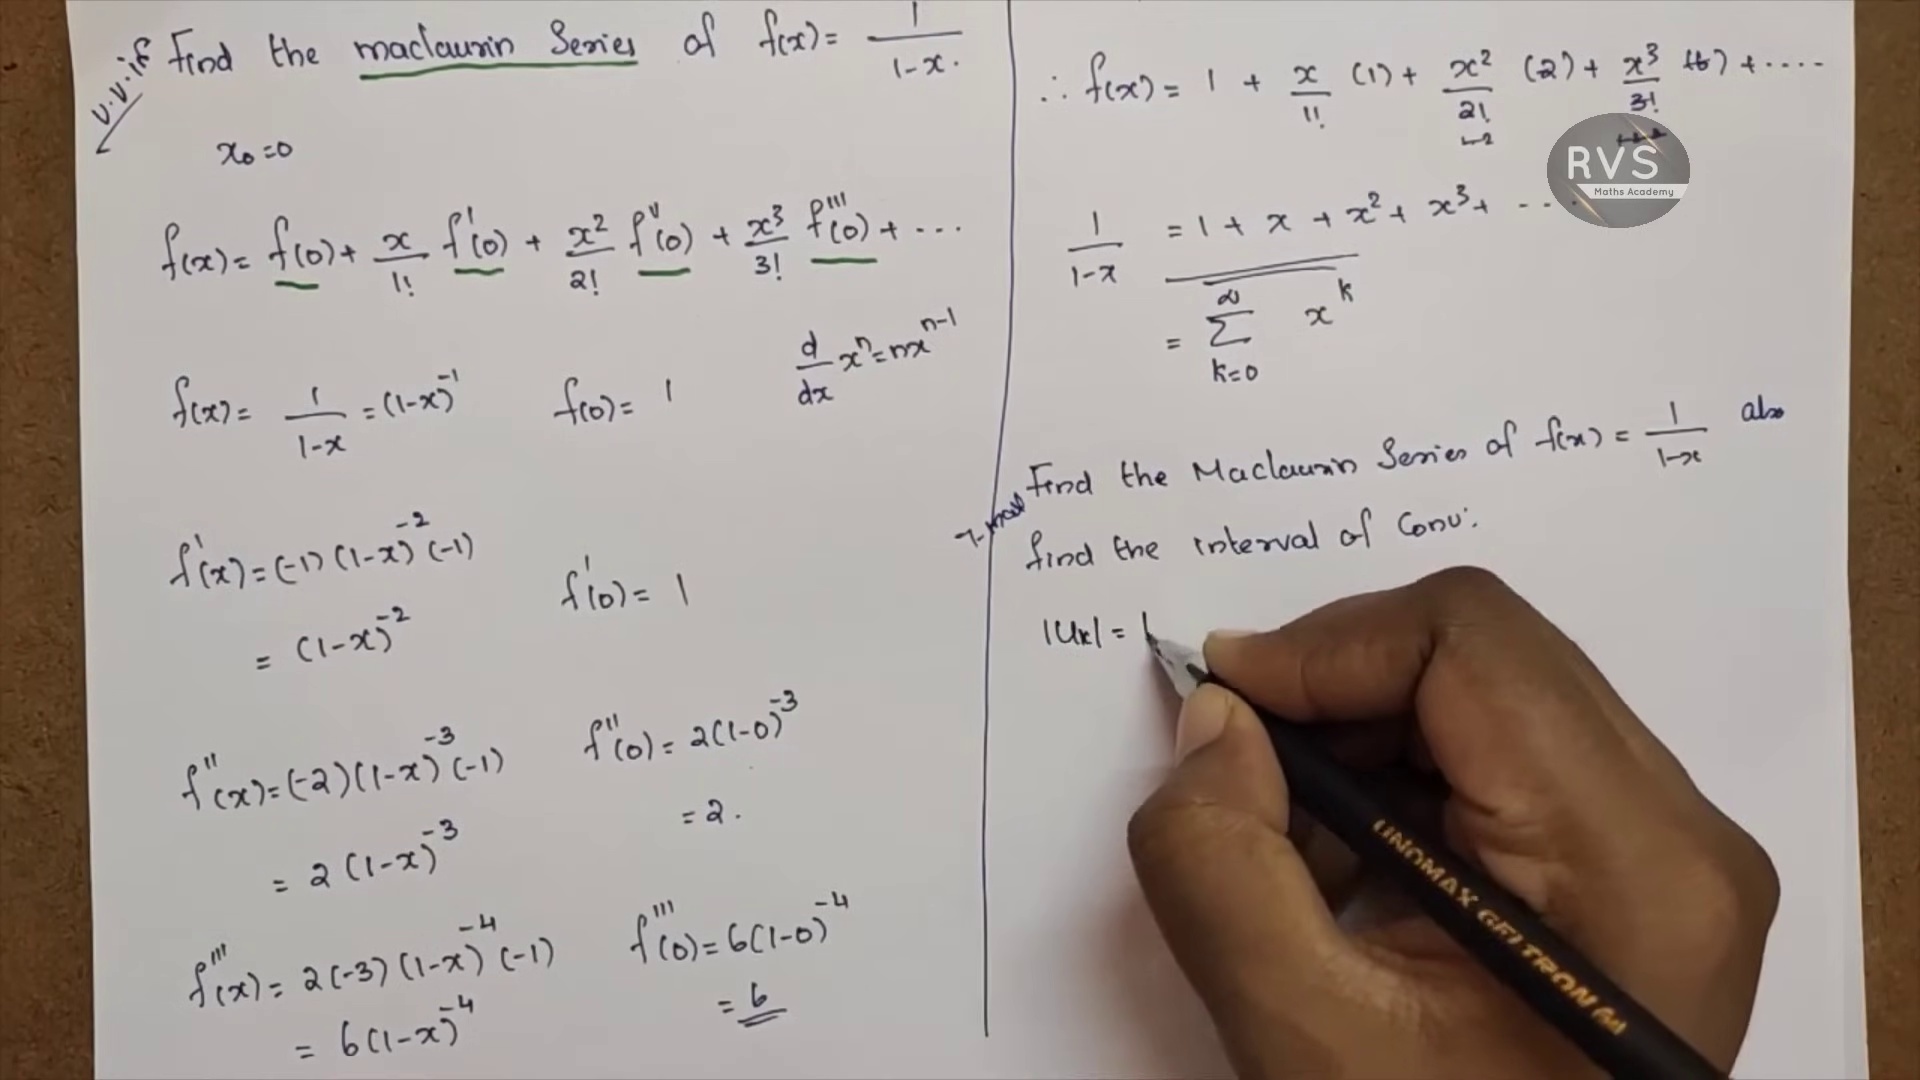 v.v.if Find the maclaurin Series of f(x)= 1/1-x.
x₀=0
f(x)= f(0)+ x/1! f'(0) + x²/2! f''(0) + x³/3! f'''(0) + ...
d/dx xⁿ=nxⁿ⁻¹
f(x)= 1/1-x =(1-x)⁻¹ f(0)= 1
f'(x)=(-1)(1-x)⁻²(-1)
= (1-x)⁻² f'(0)= 1
f''(x)=(-2)(1-x)⁻³(-1) f''(0)= 2(1-0)⁻³
= 2(1-x)⁻³ = 2.
f'''(x)= 2(-3)(1-x)⁻⁴(-1) f'''(0)=6(1-0)⁻⁴
= 6(1-x)⁻⁴ = 6
∴ f(x)= 1 + x/1! (1)+ x²/2! (2)+ x³/3! (6)+....
RVS
Maths Academy
1/1-x = 1 + x + x² + x³+ ....
= ∑ k=0 ∞ xᵏ
Find the Maclaurin Series of f(x)= 1/1-x also
find the interval of Conv:
|Uₖ| =
UNOMAX GELTRON